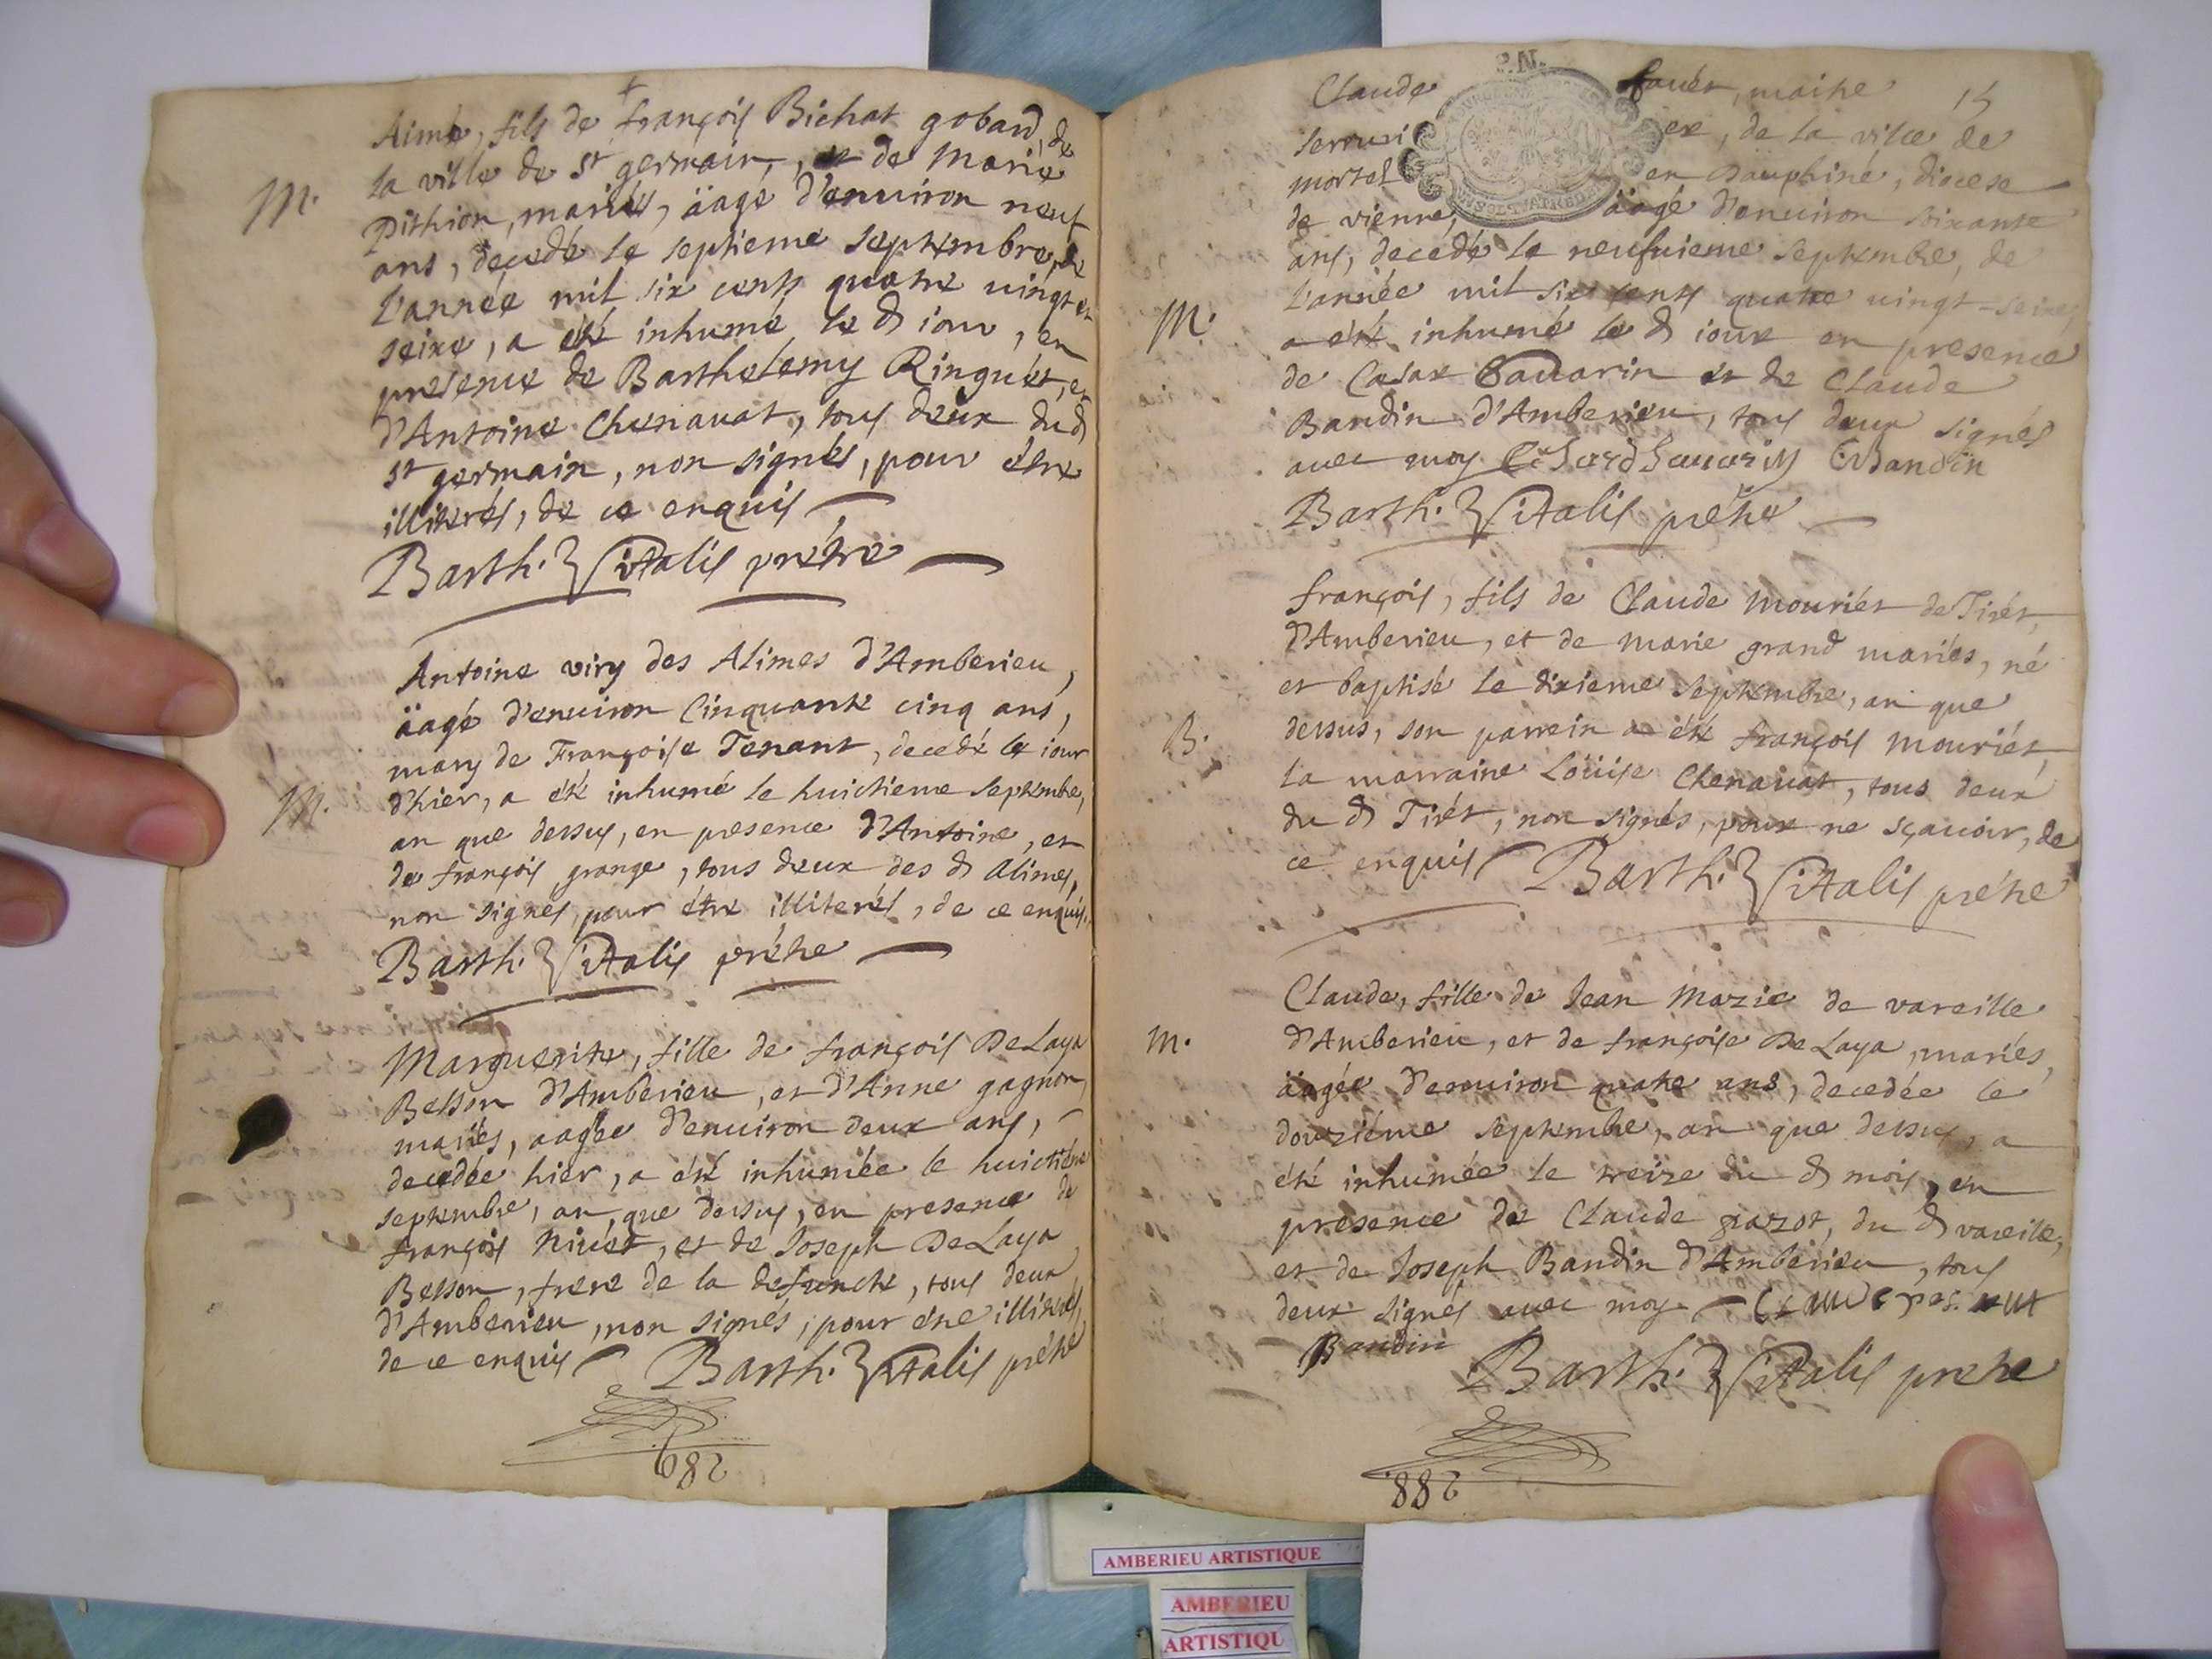 Aimé, fils de françois Bichat gobard, de
la ville de st germain, et de Marie
Pithion, mariés, äagé d'enuiron neuf
ans, decedé le septieme septembre, de
l'année mil six cents quatre uingt et
seize, a été inhumé le d iour, en
presence de Barthelemy Ringuet, et
d'Antoine Chenauat, tous deux dud
st germain, non signés, pour étre
illiterés, de ce enquis
M.
Barth. Vitalis prétre
Antoine viry des Alimes d'Amberieu,
äagé d'enuiron Cinquante cinq ans,
mary de Françoise Tenant, decedé le iour
d'hier, a été inhumé le huictieme septembre,
an que dessus, en presence d'Antoine, et
de françois grange, tous deux des d Alimes,
non signés, pour étre illiterés, de ce enquis.
M.
Barth. Vitalis prétre
Marguerite, fille de françois DeLaya
Besson d'Amberieu, et d'Anne gagnon,
mariés, aagée d'enuiron deux ans,
decedée hier, a été inhumée le huictiéme
septembre, an que dessus, en presence de
françois Niuet, et de Joseph DeLaya
Besson, frere de la defuncte, tous deux
d'Amberieu, non signés, pour étre illiterés,
de ce enquis Barth. Vitalis prétre
289
Claude fauer, maitre 15
serruri er, de la ville de
mortel en Dauphiné, diocese
de vienne, äagé d'enuiron soixante
ans, decedé le neufuieme septembre, de
l'année mil six cents quatre uingt-seize,
a été inhumé le d iour en presence
de Cesar Sauarin et de Claude
Bandin d'Amberieu, tous deux signés
auec moy Sauarin C Bandin
M.
Barth. Vitalis prétre
françois, fils de Claude Mouriér de Tirét,
d'Amberieu, et de Marie grand mariés, né
et baptisé le dixieme septembre, an que
dessus, son parrein a été françois Mouriér,
la marraine Loüise Chenauat, tous deux
du d Tirét, non signés, pour ne sçauoir, de
ce enquis Barth. Vitalis prétre
B.
Claude, fille de Jean Mazie de vareille
d'Amberieu, et de françoise DeLaya, mariés,
äagée d'enuiron quatre ans, decedée le
douziéme septembre, an que dessus, a
été inhumée le treize du d mois, en
presence de Claude pazot, du d vareille,
et de Joseph Bandin d'Amberieu, tous
deux signés auec moy
M.
Bandin
Barth. Vitalis prétre
288
AMBERIEU ARTISTIQUE
AMBERIEU
ARTISTIQU